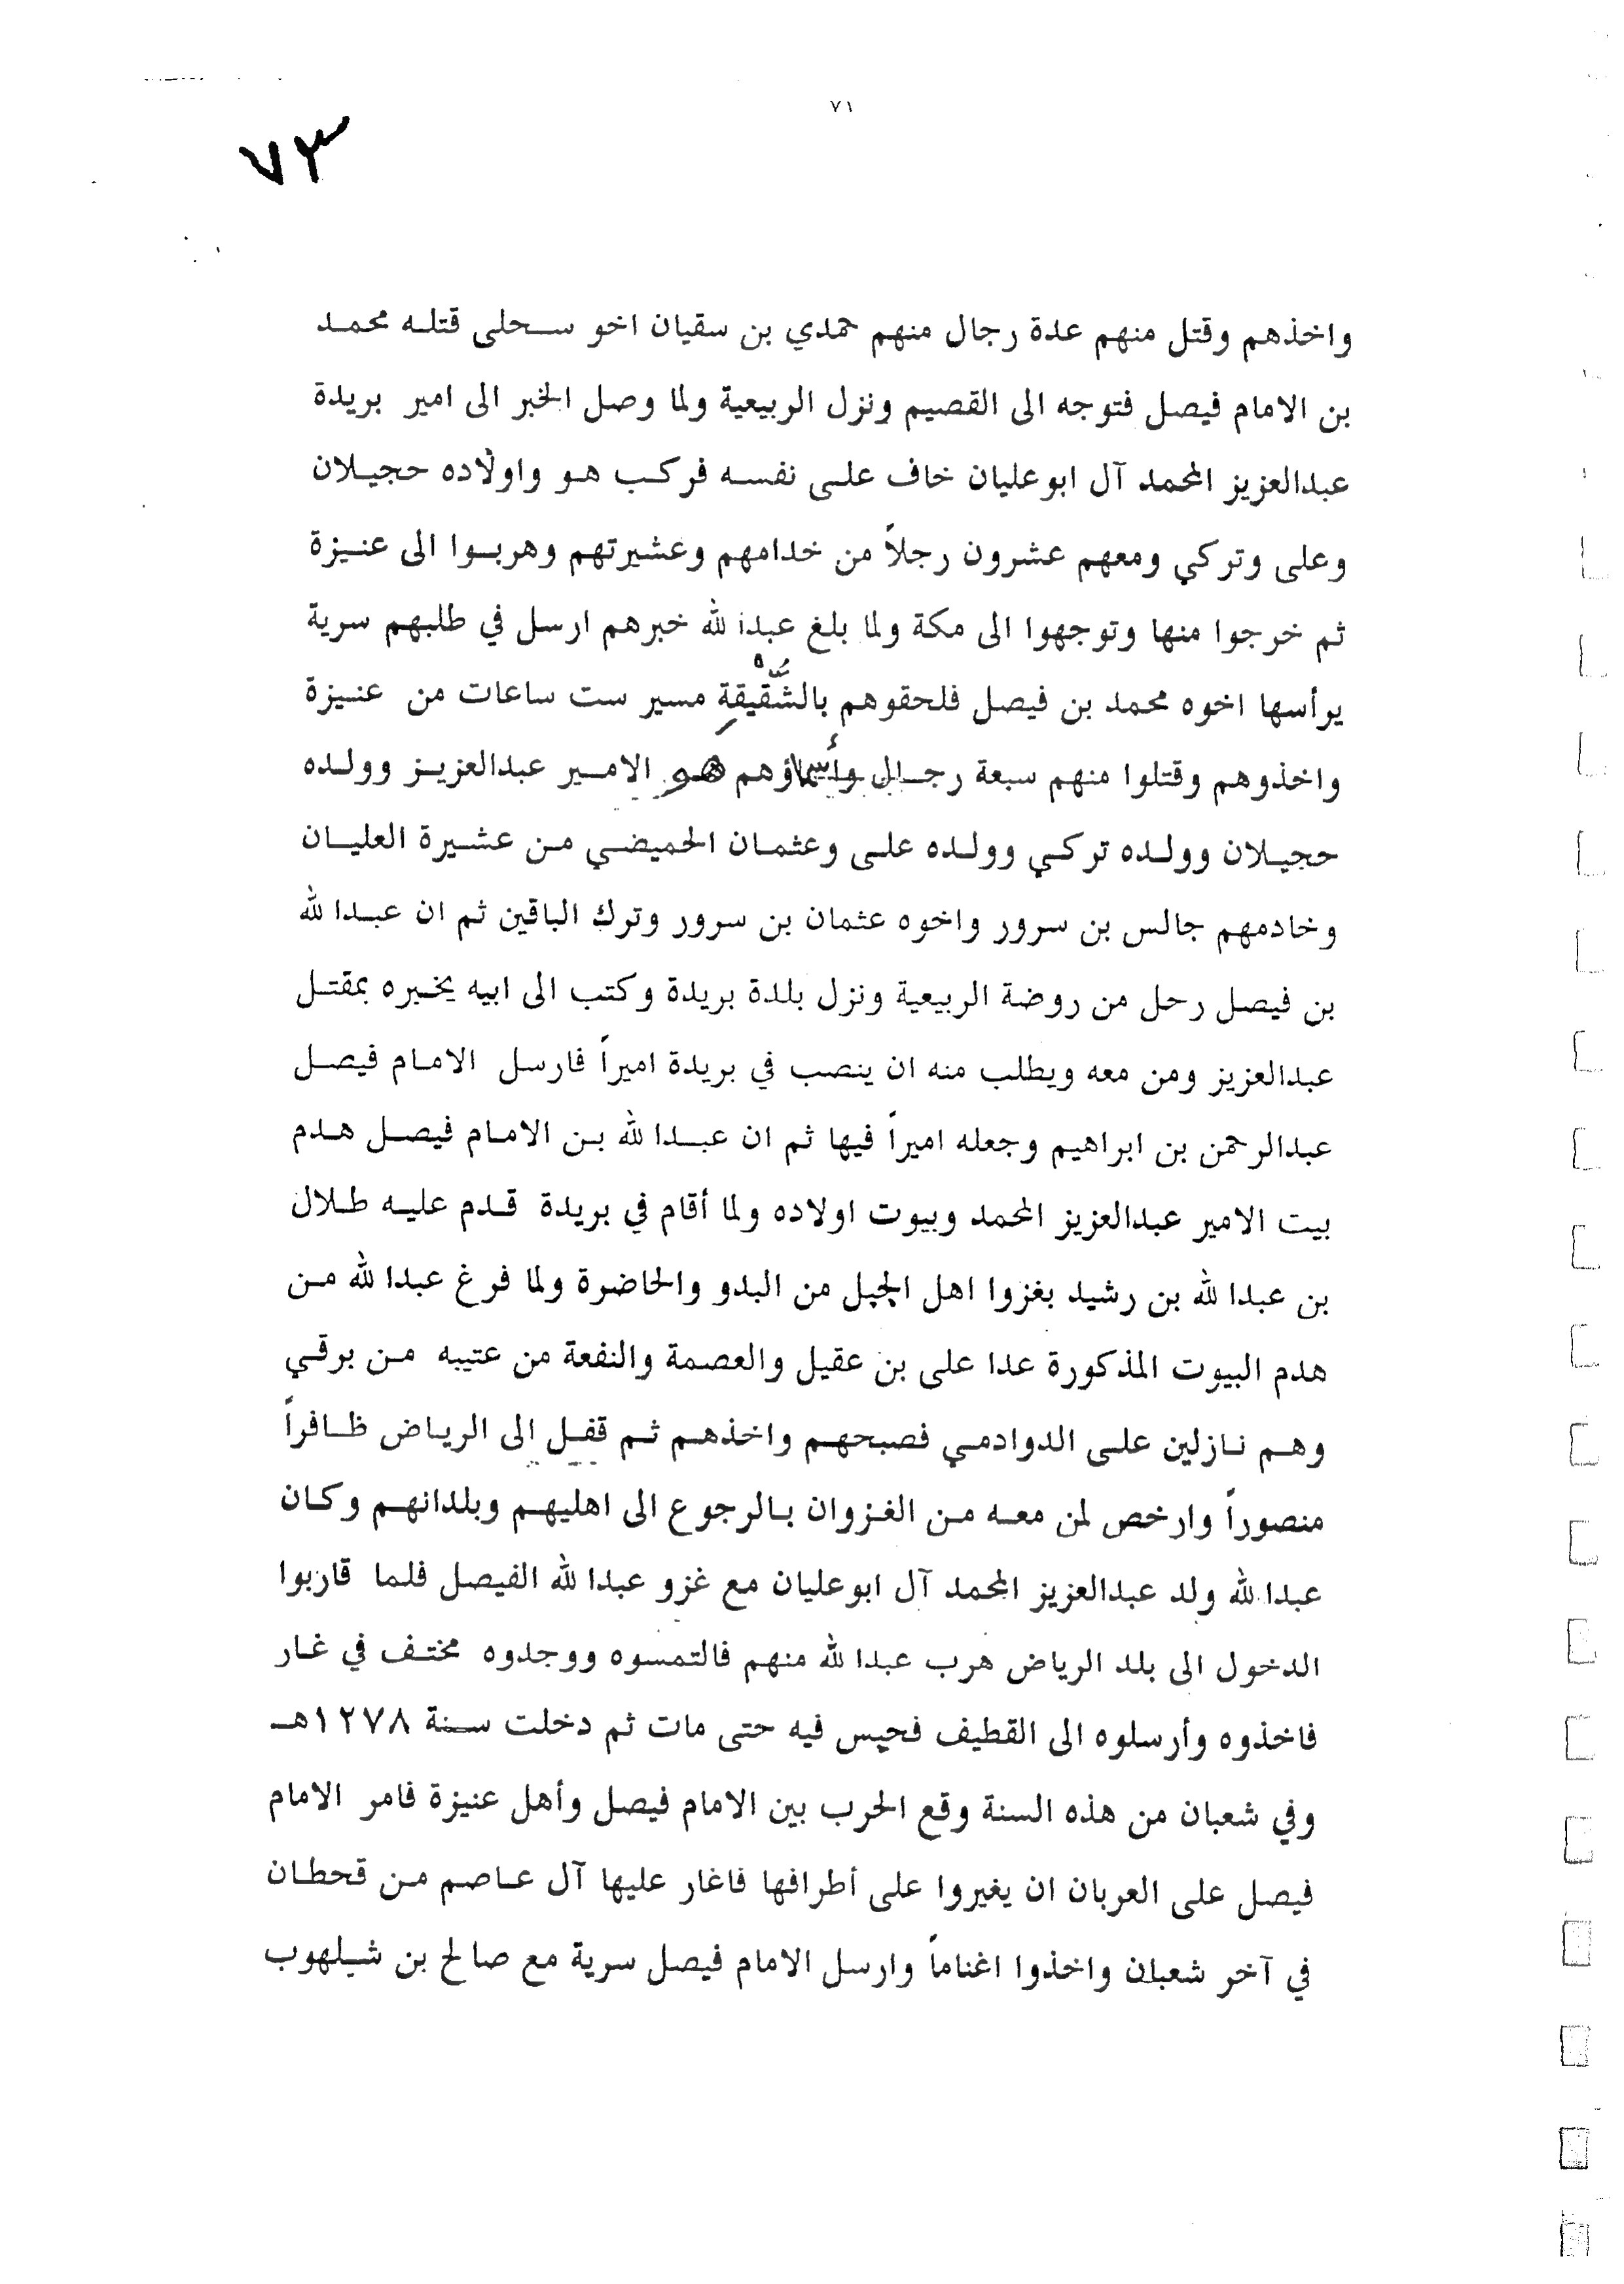 ٧١
٧٣
واخذهم وقتل منهم عدة رجال منهم حمدي بن سقيان اخو سحلى قتله محمد
بن الامام فيصل فتوجه الى القصيم ونزل الربيعية ولما وصل الخبر الى امير بريدة
عبدالعزيز المحمد آل ابوعليان خاف على نفسه فركب هو واولاده حجيلان
وعلى وتركي ومعهم عشرون رجلاً من خدامهم وعشيرتهم وهربوا الى عنيزة
ثم خرجوا منها وتوجهوا الى مكة ولما بلغ عبدالله خبرهم ارسل في طلبهم سرية
يرأسها اخوه محمد بن فيصل فلحقوهم بالشَّقيقة مسير ست ساعات من عنيزة
واخذوهم وقتلوا منهم سبعة رجال وأسماؤهم هو الامير عبدالعزيز وولده
حجيلان وولده تركي وولده على وعثمان الحميضي من عشيرة العليان
وخادمهم جالس بن سرور واخوه عثمان بن سرور وترك الباقين ثم ان عبدالله
بن فيصل رحل من روضة الربيعية ونزل بلدة بريدة وكتب الى ابيه يخبره بمقتل
عبدالعزيز ومن معه ويطلب منه ان ينصب في بريدة اميراً فارسل الامام فيصل
عبدالرحمن بن ابراهيم وجعله اميراً فيها ثم ان عبدالله بن الامام فيصل هدم
بيت الامير عبدالعزيز المحمد وبيوت اولاده ولما أقام في بريدة قدم عليه طلال
بن عبدالله بن رشيد بغزوا اهل الجبل من البدو والحاضرة ولما فرغ عبدالله من
هدم البيوت المذكورة عدا على بن عقيل والعصمة والنفعة من عتيبه من برقي
وهم نازلين على الدوادمي فصبحهم واخذهم ثم قفل الى الرياض ظافراً
منصوراً وارخص لمن معه من الغزوان بالرجوع الى اهليهم وبلدانهم وكان
عبدالله ولد عبدالعزيز المحمد آل ابوعليان مع غزو عبدالله الفيصل فلما قاربوا
الدخول الى بلد الرياض هرب عبدالله منهم فالتمسوه ووجدوه مختف في غار
فاخذوه وأرسلوه الى القطيف فحبس فيه حتى مات ثم دخلت سنة ١٢٧٨هـ
وفي شعبان من هذه السنة وقع الحرب بين الامام فيصل وأهل عنيزة فامر الامام
فيصل على العربان ان يغيروا على أطرافها فاغار عليها آل عاصم من قحطان
في آخر شعبان واخذوا اغناماً وارسل الامام فيصل سرية مع صالح بن شيلهوب